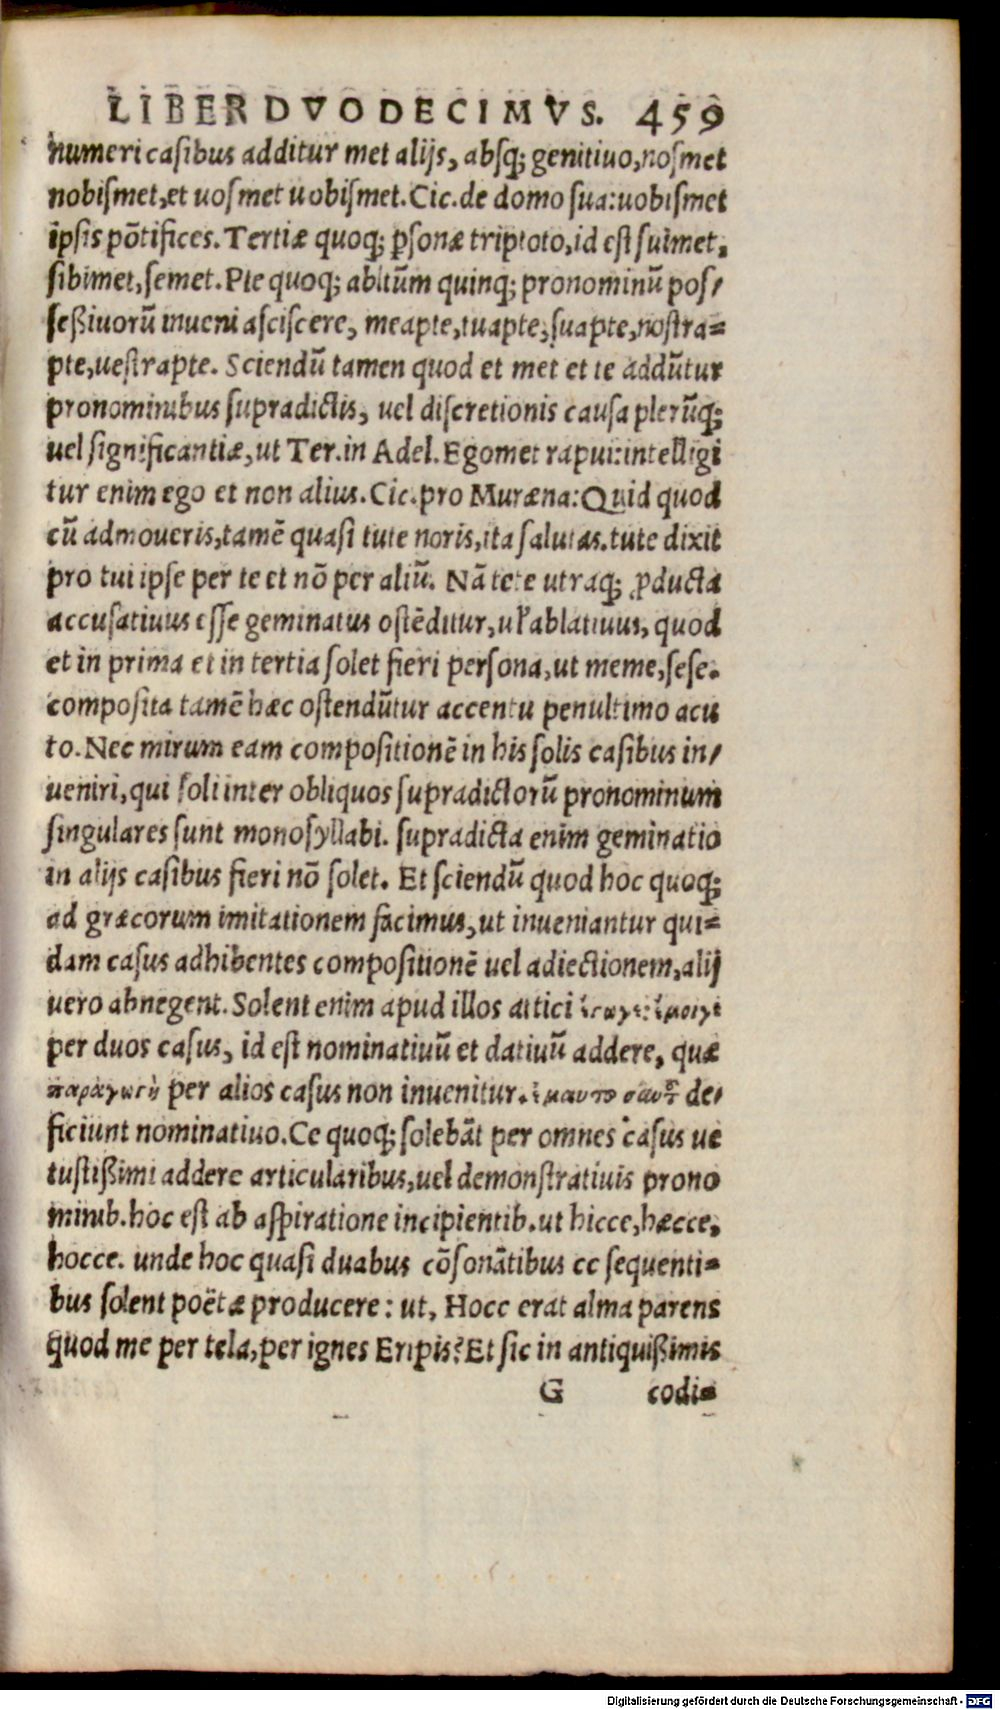 LIBER DVODECIMVS. 459
numeri casibus additur met alijs, absq; genitiuo, nosmet
nobismet, et uosmet uobismet. Cic. de domo sua: uobismet
ipsis põtifices. Tertiæ quoq; p̱sonæ triptoto, id est suimet,
sibimet, semet. Pte quoq; abltũm quinq; pronominũ pos/
seßiuorũ inueni asciscere, meapte, tuapte, suapte, nostra=
pte, uestrapte. Sciendũ tamen quod et met et te addũtur
pronominibus supradictis, uel discretionis causa plerũq;
uel significantiæ, ut Ter. in Adel. Egomet rapui: intelligi
tur enim ego et non alius. Cic. pro Muræna: Quid quod
cũ admoueris, tamẽ quasi tute noris, ita salutas. tute dixit
pro tui ipse per te et nõ per aliũ. Nã tete utraq; ꝓducta
accusatiuus esse geminatus ostẽditur, uł ablatiuus, quod
et in prima et in tertia solet fieri persona, ut meme, sese.
composita tamẽ hæc ostendũtur accentu penultimo acu
to. Nec mirum eam compositionẽ in his solis casibus in/
ueniri, qui soli inter obliquos supradictorũ pronominum
singulares sunt monosyllabi. supradicta enim geminatio
in alijs casibus fieri nõ solet. Et sciendũ quod hoc quoq;
ad græcorum imitationem facimus, ut inueniantur qui=
dam casus adhibentes compositionẽ uel adiectionem, alij
uero abnegent. Solent enim apud illos attici ἔγωγε: ἔμοιγε
per duos casus, id est nominatiuũ et datiuũ addere, quæ
παραγωγὴ per alios casus non inuenitur. ἐμαυτο σαυτ̃ de/
ficiunt nominatiuo. Ce quoq; solebãt per omnes casus ue
tustißimi addere articularibus, uel demonstratiuis prono
minib. hoc est ab aspiratione incipientib. ut hicce, hæcce,
hocce. unde hoc quasi duabus cõsonãtibus cc sequenti=
bus solent poëtæ producere: ut, Hocc erat alma parens
quod me per tela, per ignes Eripis? Et sic in antiquißimis
G codi=
Digitalisierung gefördert durch die Deutsche Forschungsgemeinschaft - DFG